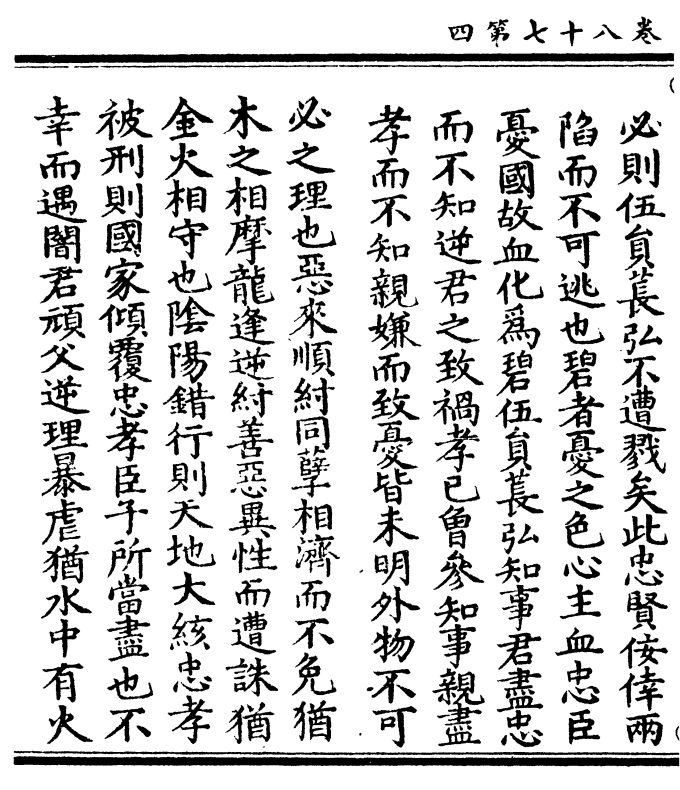 卷八十七第四
必則伍員萇弘不遭戮矣此忠賢侫倖兩
陷而不可逃也碧者憂之色心主血忠臣
憂國故血化爲碧伍員萇弘知事君盡忠
而不知逆君之致禍孝已曾參知事親盡
孝而不知親嫌而致憂皆未明外物不可
必之理也惡來順紂同孽相濟而不免猶
木之相摩龍逢逆紂善惡異性而遭誅猶
金火相守也陰陽錯行則天地大絯忠孝
被刑則國家傾覆忠孝臣子所當盡也不
幸而遇闇君頑父逆理暴虐猶水中有火